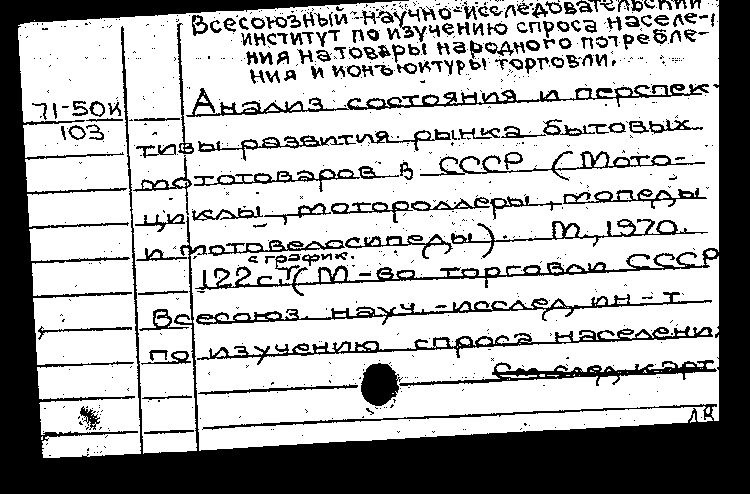 Всесоюзный научно-исследовательский
институт по изучению спроса населе-
ния на товары народного потребле-
ния и конъюктуры торговли.
71-50к
103
Анализ состояния и перспек-
тивы развития рынка бытовых
мототоваров в СССР (Мото-
циклы, мотороллеры, мопеды
и мотовелосипеды). М., 1970.
с график.
122 с. (М-во торговли СССР
Всесоюз. науч.-исслед. ин-т
по изучению спроса населени
См след карт